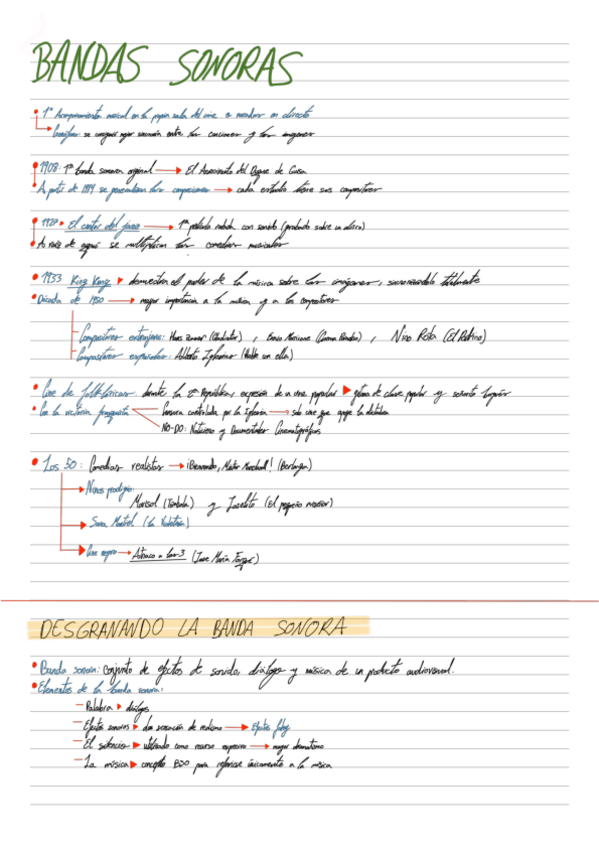 BANDAS SONORAS
1º Acompañamiento musical en la propia sala del cine o en directo
se conseguir mejor entre las canciones y las imágenes
1908: 1ª banda sonora original → El Asesinato del Duque de Guisa
A partir de se las composiciones → cada estudio tiene sus compositores
1927 El cantor del jazz → 1ª película rodada con sonido (grabado sobre un disco)
A raíz de aquí se multiplican las comedias musicales
1933 King Kong ▸ demuestra el poder de la música sobre las imágenes, totalmente
Década de 1950 → mayor importancia a la música y a los compositores
Compositores extranjeros: Hans Zimmer (Gladiator), Ennio Morricone, Nino Rota (El Padrino)
Compositores españoles: Alberto Iglesias (Hable con ella)
Cine de folklóricas durante la 2ª República, expresión de un cine popular ▸ de clase popular y
Con la victoria franquista Censura controlada por la Iglesia → solo cine que apoye la dictadura
NO-DO: Noticiero y Documentales Cinematográficos
Los 50: Comedias realistas → ¡Bienvenido, Míster Marshall! (Berlanga)
Niños prodigio:
Marisol (Tómbola) y Joselito (El pequeño ruiseñor)
Sara Montiel (La Violetera)
Cine negro → Atraco a las 3 (José María Forqué)
DESGRANANDO LA BANDA SONORA
Banda sonora: conjunto de efectos de sonido, diálogos y música de un producto audiovisual.
Elementos de la banda sonora:
- Palabra ▸ diálogos
- Efectos sonoros ▸ dan sensación de realismo → Efectos foley
- El silencio ▸ utilizado como recurso expresivo → mayor dramatismo
- La música ▸ concepto BSO para referirse únicamente a la música